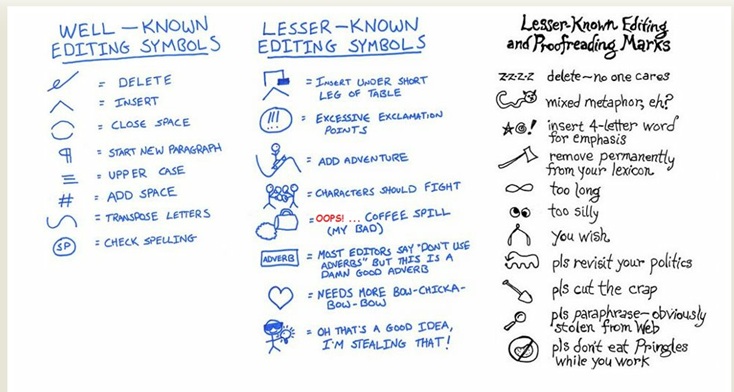 WELL-KNOWN
EDITING SYMBOLS
= DELETE
= INSERT
= CLOSE SPACE
¶ = START NEW PARAGRAPH
= UPPER CASE
# = ADD SPACE
= TRANSPOSE LETTERS
SP = CHECK SPELLING
LESSER-KNOWN
EDITING SYMBOLS
= INSERT UNDER SHORT
LEG OF TABLE
!!! = EXCESSIVE EXCLAMATION
POINTS
= ADD ADVENTURE
= CHARACTERS SHOULD FIGHT
= OOPS! ... COFFEE SPILL
(MY BAD)
ADVERB = MOST EDITORS SAY "DON'T USE
ADVERBS" BUT THIS IS A
DAMN GOOD ADVERB
= NEEDS MORE BOW-CHICKA-
BOW-BOW
= OH THAT'S A GOOD IDEA,
I'M STEALING THAT!
Lesser-Known Editing
and Proofreading Marks
z-z-z-z delete~no one cares
mixed metaphor, eh?
*@! insert 4-letter word
for emphasis
remove permanently
from your lexicon
∞ too long
too silly
you wish
pls revisit your politics
pls cut the crap
pls paraphrase~obviously
stolen from Web
pls don't eat Pringles
while you work